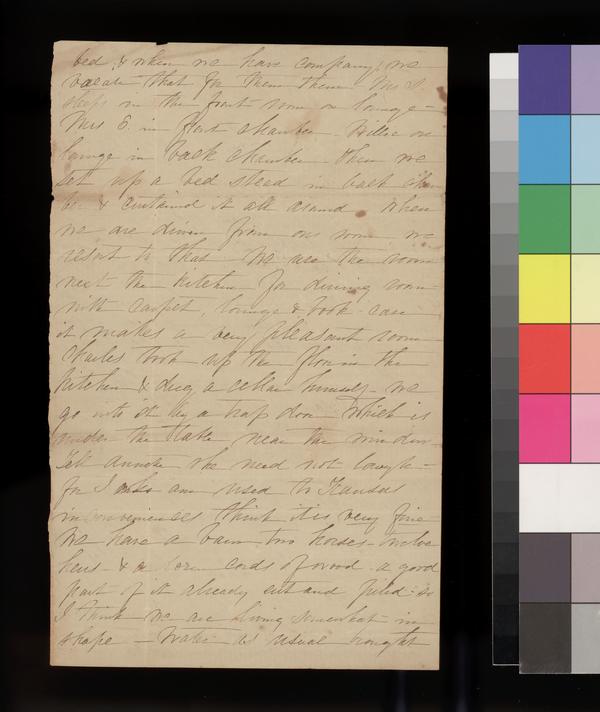 bed, & when we have company, we
vacate that for them then Mrs S.
sleeps in the front room on lounge –
Mrs C. in front chamber Willie on
lounge in back chamber. Then we
set up a bed stead in back cham
ber & curtained it all around when
we are driven from our room we
resort to that We use the room
next the kitchen for dining room
with carpet, lounge & book case
it makes a very pleasant room
Charles took up the floor in the
kitchen & dug a cellar himself – we
go into it by a trap door Which is
under the table near the window
Tell she need not laugh –
for I who am used to Kansas
inconveniences think it is very fine
We have a barn two horses – twelve
hens – & cords of wood – a good
part of it already cut and piled – so
I think we are living somewhat in
shape – Water as usual brought